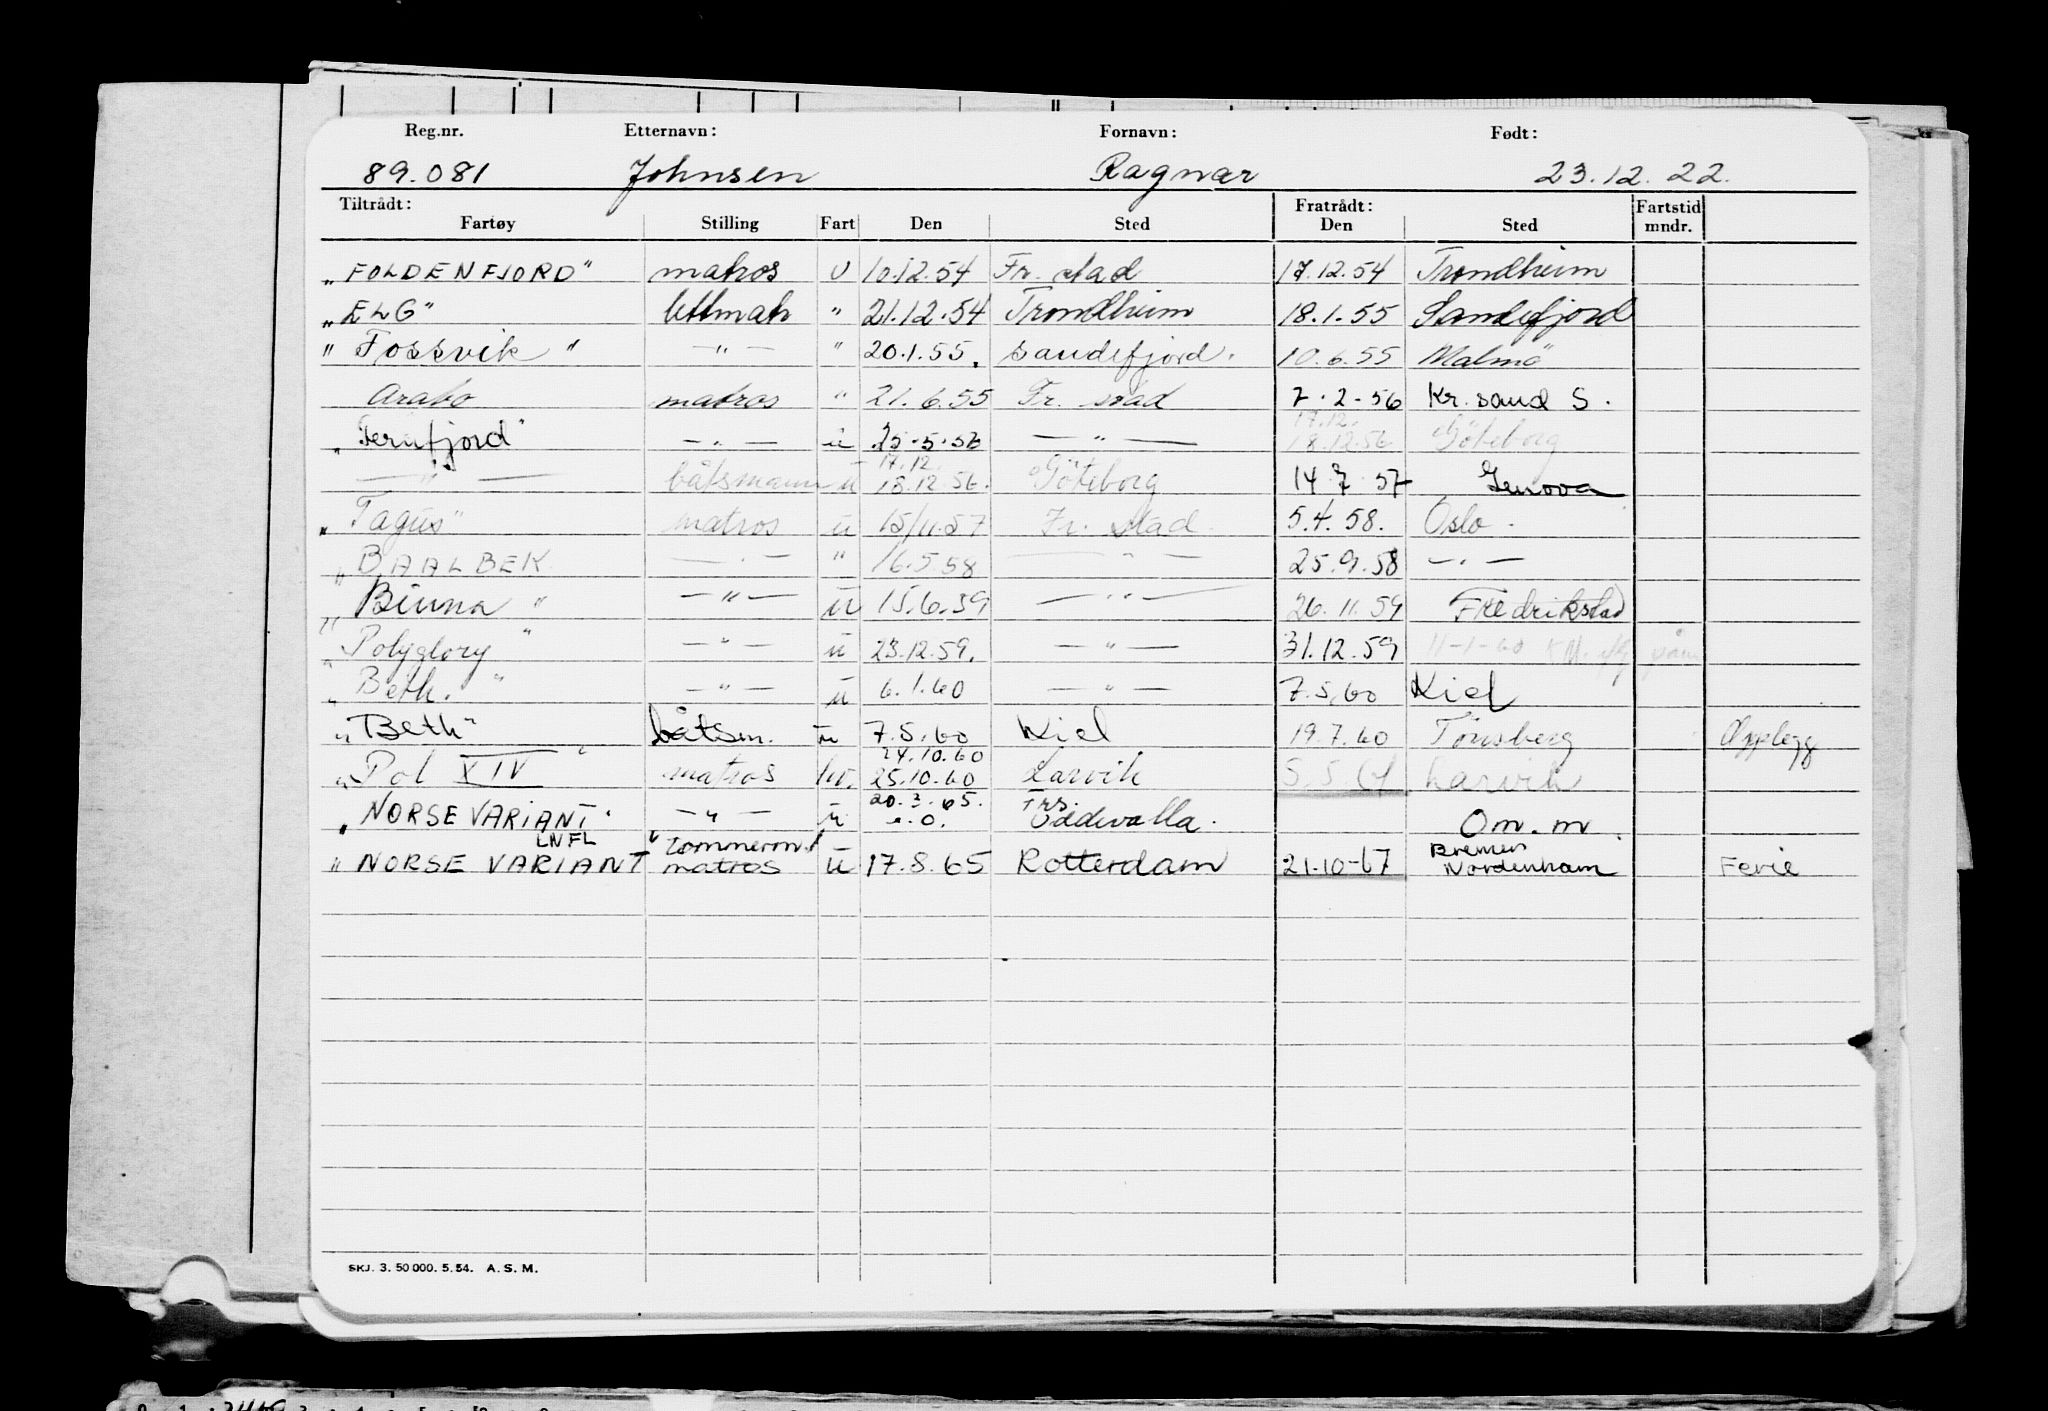 Reg.nr. Etternavn: Fornavn: Født:
89.081 Johnsen Ragnar 23.12.22.
Tiltrådt: Fratrådt: Fartstid
Fartøy Stilling Fart Den Sted Den Sted mndr.
"FOLDENFJORD" matros U 10.12.54 Fr. stad 17.12.54 Trondheim
"ELG" lettmatr " 21.12.54 Trondheim 18.1.55 Sandefjord
"Fossvik" — " — " 20.1.55. Sandefjord. 10.6.55 Malmö
Arabo matros " 21.6.55 Fr. stad 7.2-56 Kr.sand S.
17.12.
"Ternfjord" — " — u 25.5.56 — " — 18.12.56 Göteborg
17.12.
— " — båtsmann u 18.12.56. Göteborg 14.7.57 Genova
"Tagus" matros u 15/11.57 Fr. stad. 5.4.58. Oslo.
"BAALBEK — " — " 16.5.58 — " — 25.9.58 — " —
"Binna" — " — u 15.6.59 — " — 26.11.59 Fredrikstad
"Polyglory" — " — u 23.12.59. — " — 31.12.59 11-1-60
"Beth." — " — u 6.1.60 — " — 7.5.60 Kiel
"Beth" båtsm. u 7.5.60 Kiel 19.7.60 Tønsberg Opplegg
24.10.60
"Pol XIV" matros hv. 25.10.60 Larvik 5.5.61 Larvik
20.3.65. Frs.
"NORSE VARIANT" — " — u e.o. Uddevalla. Om.m.
LNFL tømmerm. Bremen
"NORSE VARIANT matros u 17.8.65 Rotterdam 21.10-67 Nordenham Ferie
SKJ. 3. 50 000. 5. 54. A. S. M.